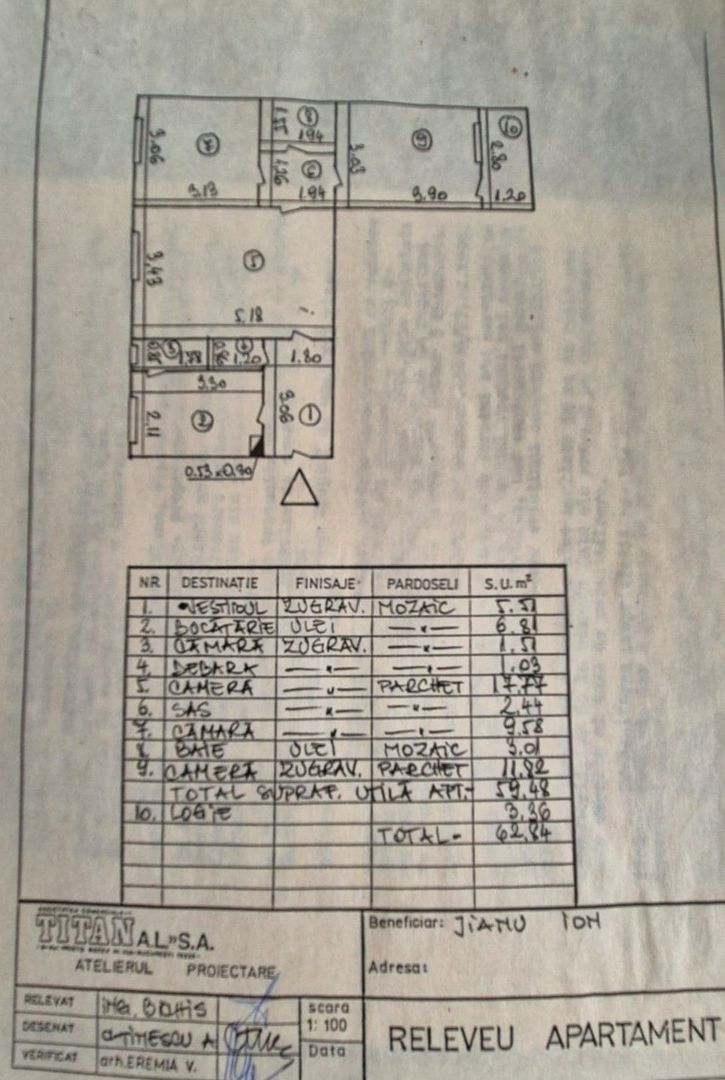 7 8 9 10
3.06 1.55 1.94 3.03 2.80
3.13 1.26 6 1.94 3.90 1.20
5
3.43
5.18
3 1.58 4 1.20 1.80
3.30
2.11 2 3.06 1
0.53 x 0.30
NR. DESTINAȚIE FINISAJE PARDOSELI S.U.m²
1. VESTIBUL ZUGRAV. MOZAIC 5.51
2. BUCĂTĂRIE ULEI —"— 6.81
3. CĂMARĂ ZUGRAV. —"— 1.51
4. DEBARA —"— —"— 1.03
5. CAMERĂ —"— PARCHET 17.77
6. SAS —"— —"— 2.44
7. CAMARĂ —"— —"— 9.58
8. BAIE ULEI MOZAIC 3.01
9. CAMERĂ ZUGRAV. PARCHET 11.82
TOTAL SUPRAF. UTILĂ APT.- 59.48
10. LOGIE 3.36
TOTAL- 62.84
SOCIETATEA COMERCIALĂ
TITAN A.L" S.A.
ATELIERUL PROIECTARE
Beneficiar: JIANU ION
Adresa:
RELEVAT ing. BOHIS
DESENAT
VERIFICAT arh. EREMIA V.
scara
1: 100
Data
RELEVEU APARTAMENT